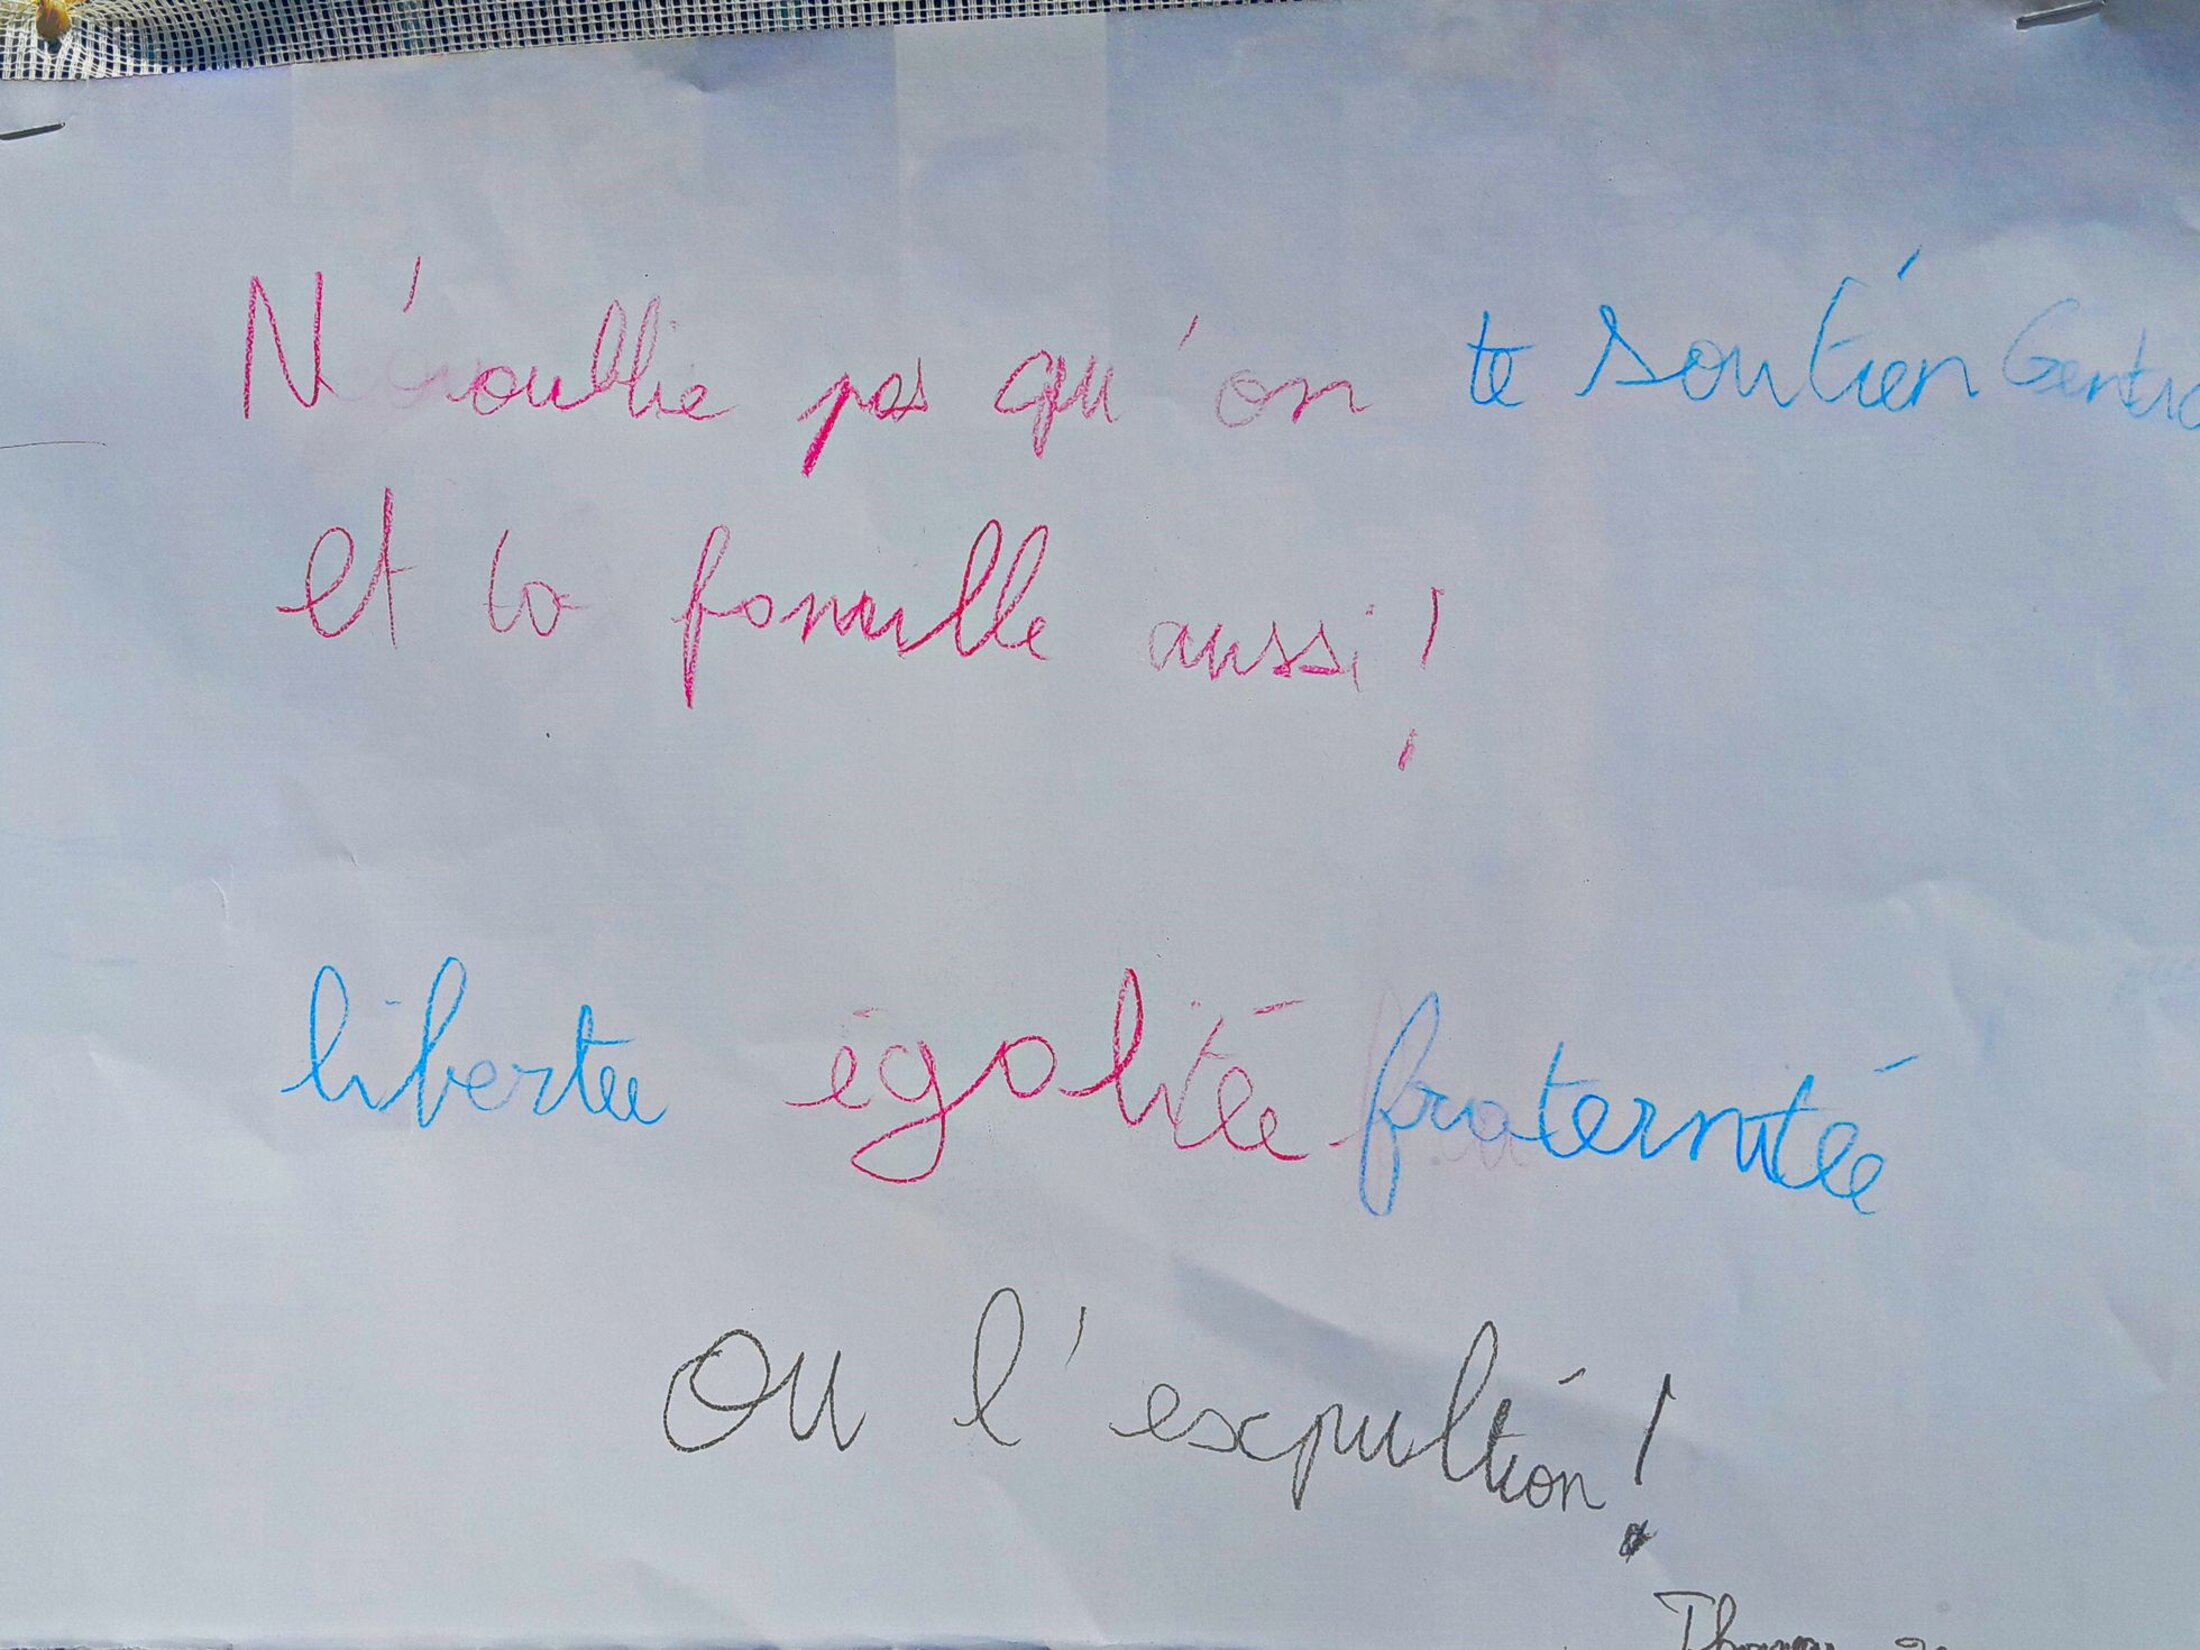 N'oublie pas qu'on te soutien
et ta famille aussi!
libertée égalitée fraternitée
ou l'expultion!